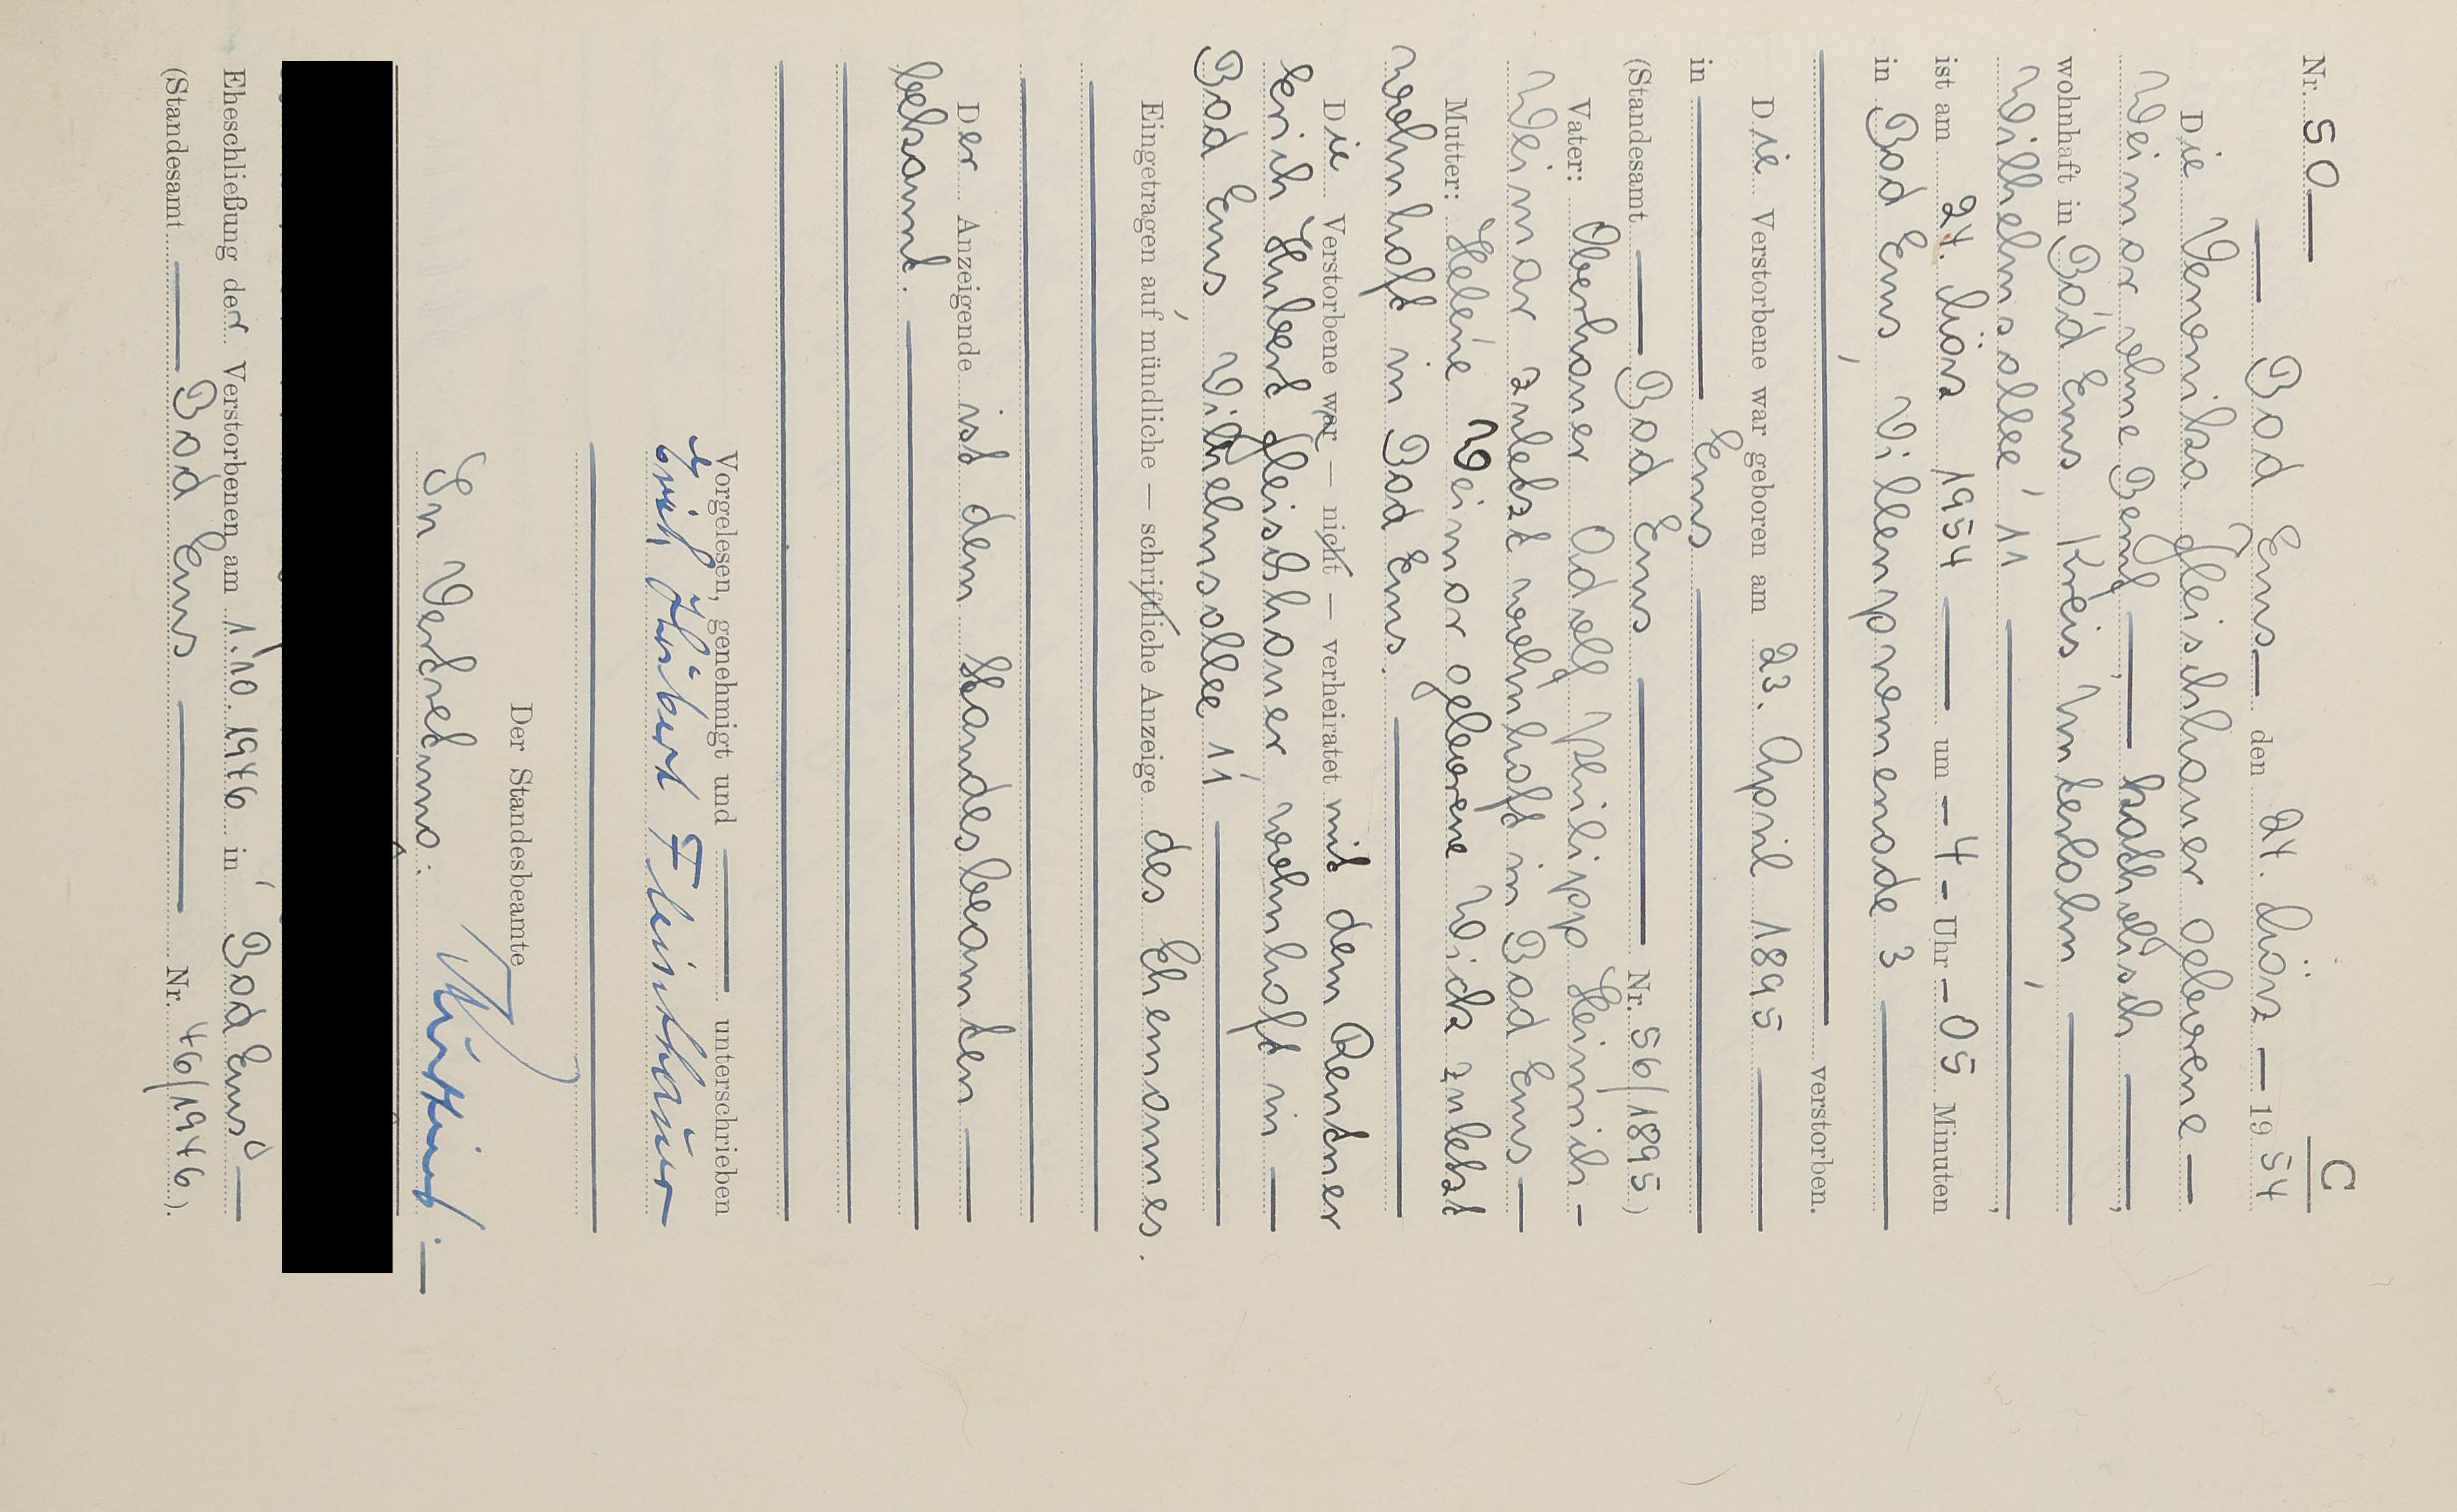 Nr. 50
C
Bad Ems den 24. März 1954
Die Veronika Fleischhauer geborene
Weimar ohne Beruf, katholisch,
wohnhaft in Bad Ems Kreis Unterlahn,
Wilhelmsallee 11,
ist am 24. März 1954 um - 4 - Uhr - 05 Minuten
in Bad Ems, Villenpromenade 3
verstorben.
Die Verstorbene war geboren am 23. April 1895
in Ems
(Standesamt Bad Ems Nr. 56/1895)
Vater: Oberhauer Adolf Philipp Heinrich -
Weimar zuletzt wohnhaft in Bad Ems
Mutter: Helene Weimar geborene Wick zuletzt
wohnhaft in Bad Ems.
Die Verstorbene war — nicht — verheiratet mit dem Rentner
Erich Hubert Fleischhauer wohnhaft in
Bad Ems, Wilhelmsallee 11
Eingetragen auf mündliche — schriftliche Anzeige des Ehemannes.
Der Anzeigende ist dem Standesbeamten
bekannt.
Vorgelesen, genehmigt und unterschrieben
Erich Hubert Fleischhauer
Der Standesbeamte
In Vertretung:
Eheschließung der Verstorbenen am 1.10.1946 in Bad Ems
(Standesamt Bad Ems Nr. 46/1946).